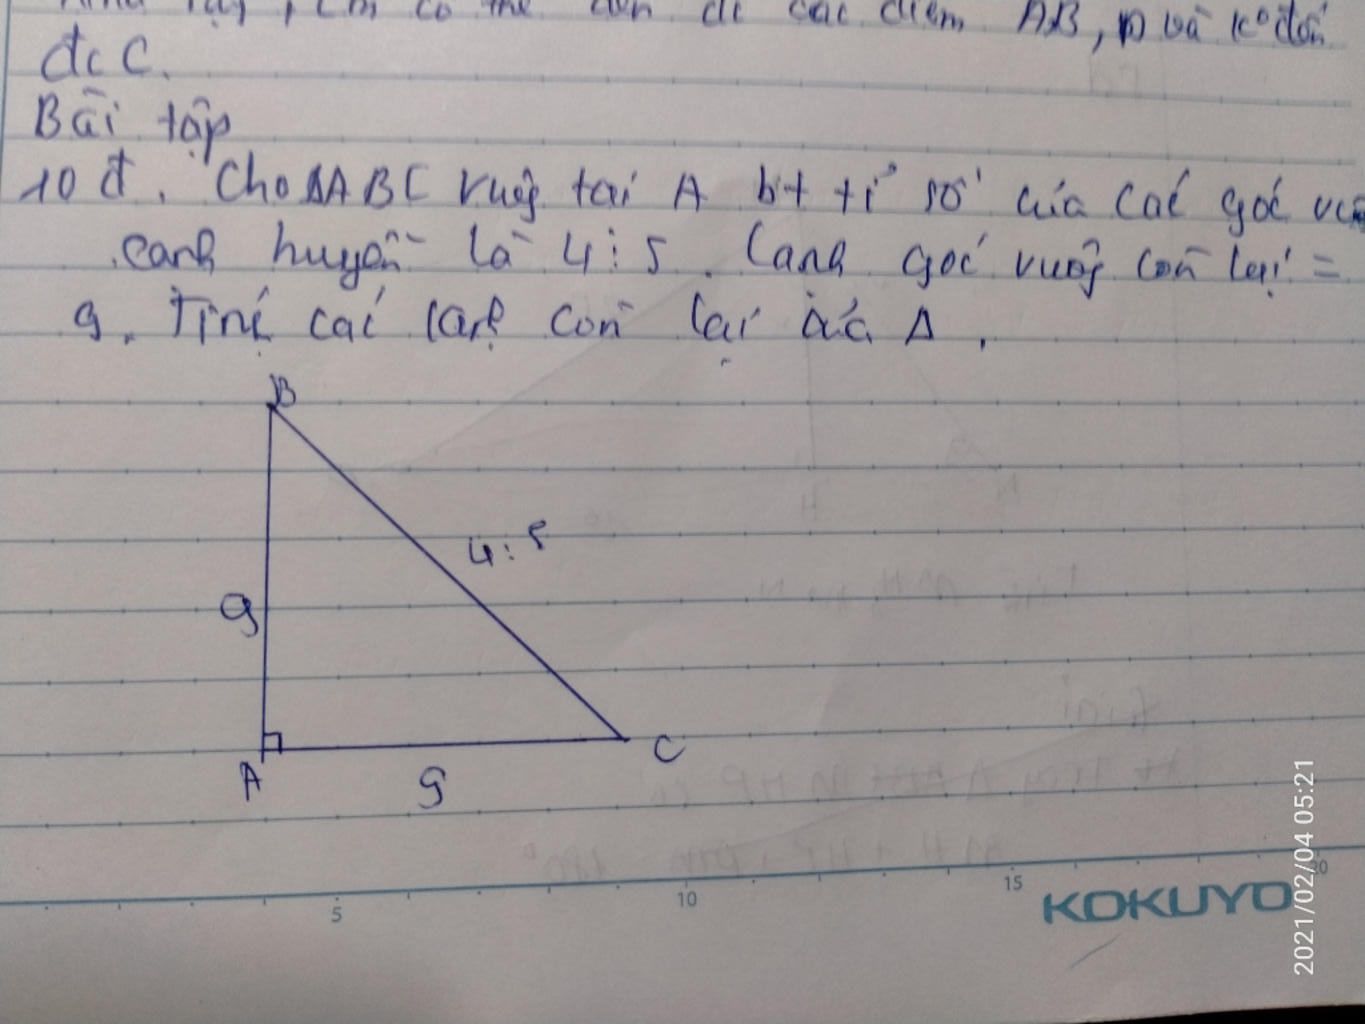 , Em có thể đến đc các điểm AB, D và k° đến
đc C.
Bài tập
10 đ. Cho ΔABC vuông tại A bt tỉ số của các góc
cạnh huyền là 4:5. Cạnh góc vuông còn lại =
9. Tính các cạnh còn lại của Δ.
B
4:5
9
A
9
C
5
10
15
20
KOKUYO
2021/02/04 05:21